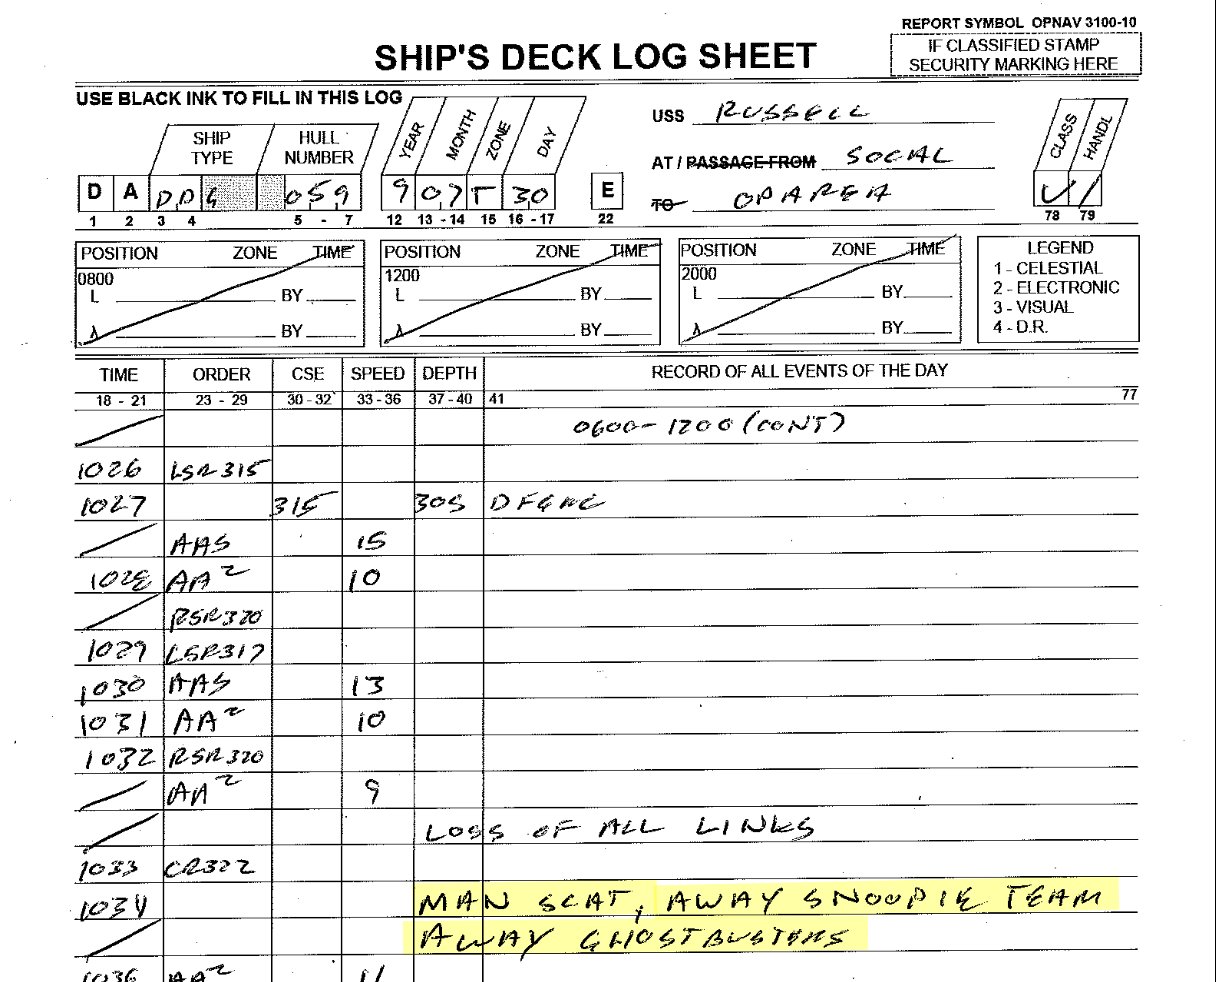 REPORT SYMBOL OPNAV 3100-10
IF CLASSIFIED STAMP
SECURITY MARKING HERE
SHIP'S DECK LOG SHEET
USE BLACK INK TO FILL IN THIS LOG
SHIP TYPE HULL NUMBER YEAR MONTH ZONE DAY
USS RUSSELL
CLASS HANDL
AT / PASSAGE FROM SOCAL
TO OPAREA
D A DDG 059 9 07 T 30 E U /
1 2 3 4 5 - 7 12 13 - 14 15 16 - 17 22 78 79
POSITION ZONE TIME POSITION ZONE TIME POSITION ZONE TIME LEGEND
0800 1200 2000 1 - CELESTIAL
L BY L BY L BY 2 - ELECTRONIC
3 - VISUAL
λ BY λ BY λ BY 4 - D.R.
TIME ORDER CSE SPEED DEPTH RECORD OF ALL EVENTS OF THE DAY
18 - 21 23 - 29 30 - 32 33 - 36 37 - 40 41 77
0600-1200 (CONT)
1026 LSR315
1027 315 305
AAS 15
1028 AA2 10
RSR320
1029 LSR317
1030 AAS 13
1031 AA2 10
1032 RSR320
AA2 9
LOSS OF ALL LINKS
1033 CR322
1034 MAN SCAT, AWAY SNOOPIE TEAM
AWAY GHOSTBUSTERS
1036 AA2 11